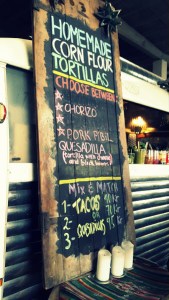 HOMEMADE
CORN FLOUR
TORTILLAS
CHOOSE BETWEEN
CHORIZO
PORK PIBIL
QUESADILLA
(tortilla with cheese
and black beans)
Mix & MATCH
1-TACOS
2-
3-